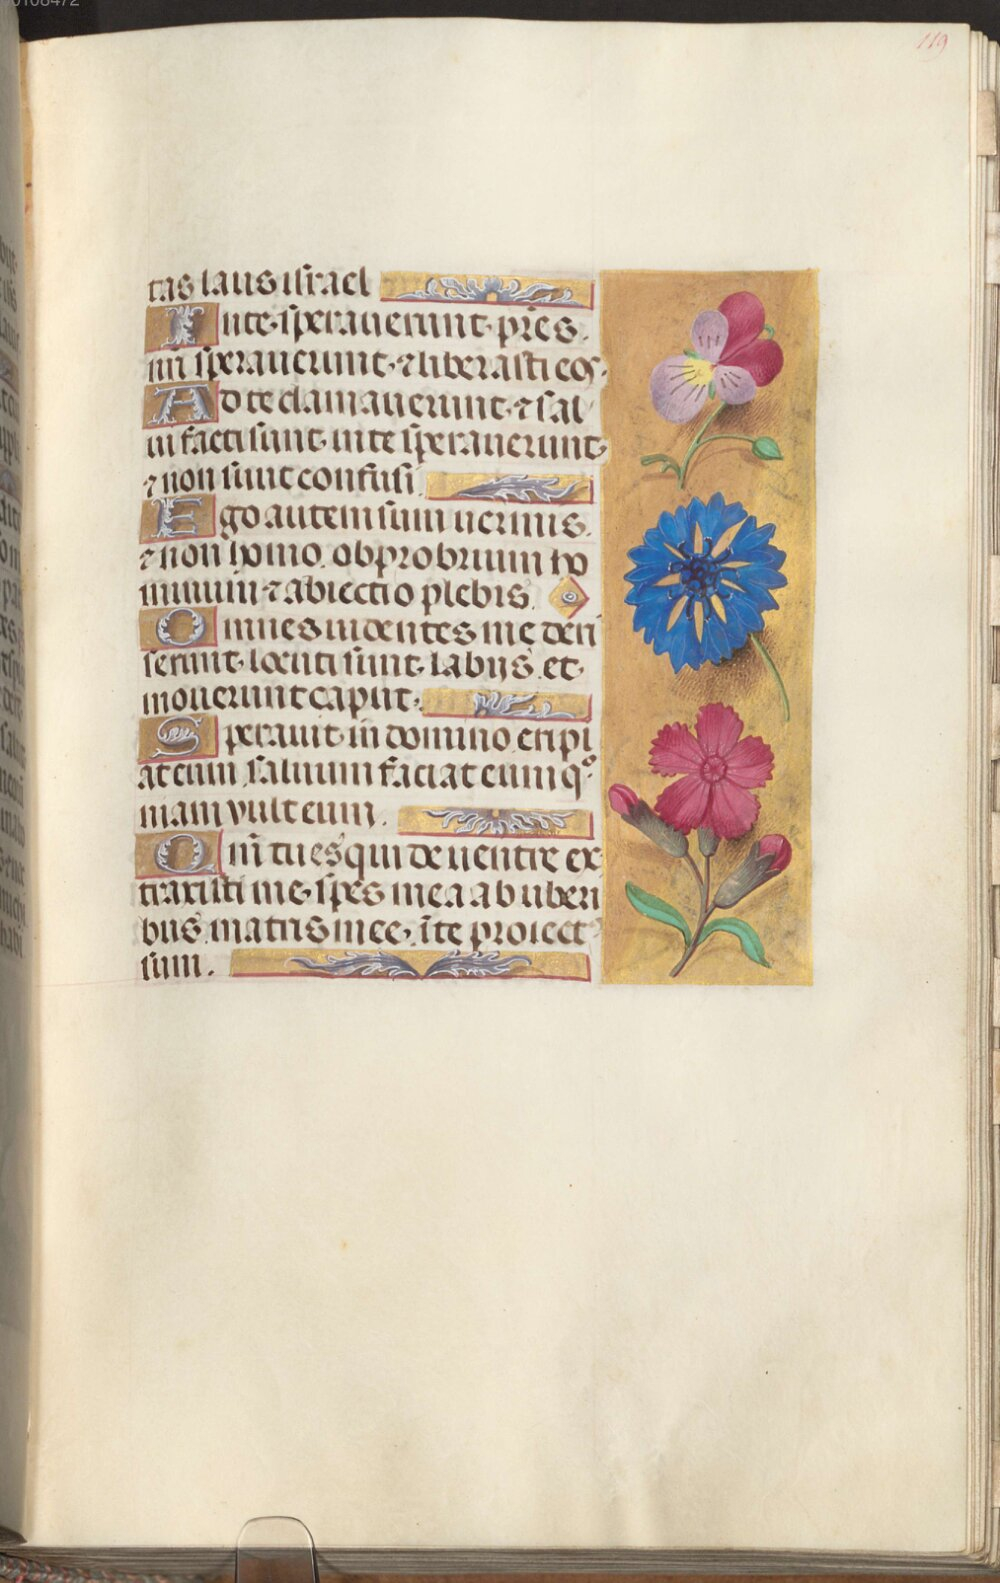 119
tas laus israel
In te speraverunt pr̄es
nr̄i speraverunt ⁊ liberasti eos
Ad te clamaverunt ⁊ sal
ui facti sunt in te speraverunt
⁊ non sunt confusi
Ego autem sum vermis
⁊ non homo obprobrium ho
minum ⁊ abiectio plebis
Omnes videntes me deri
serunt locuti sunt labijs et
moverunt caput
Speravit in domino eripi
at eum salvum faciat eum qº
niam vult eum
Qm̄ tu es qui de ventre ex
traxisti me spes mea ab uberi
bus matris mee ī te proiect⁹
sum